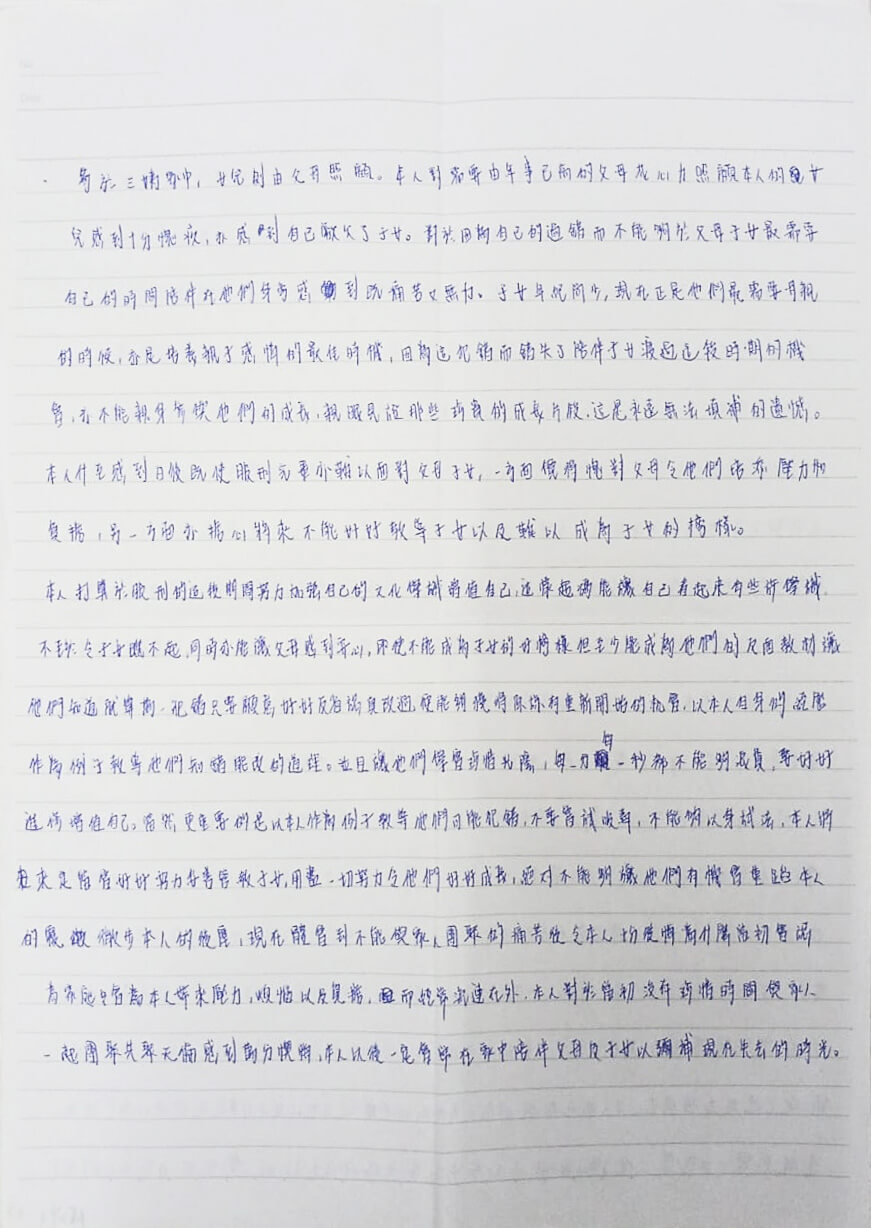 三姨家中，女兒則由父母照顧。本人對需要由年事已高的父母花心力照顧本人的女
兒感到十分慚疚，亦感到自己虧欠了子女。對於因為自己的過錯而不能夠於父母子女最需要
自己的時間陪伴在他們身旁感到既痛苦又無力。子女年紀尚少，現在正是他們最需要母親
的時候，亦是培養親子感情的最佳時機，因為這犯錯而錯失了陪伴子女渡過這段時期的機
會，亦不能親身參與他們的成長，親眼見證那些珍貴的成長片段，這是永遠無法填補的遺憾。
本人什至感到日後既使服刑完畢亦難以面對父母子女，一方面很愧對父母令他們倍添壓力和
負擔，另一方面亦擔心將來不能好好教導子女以及難以成為子女的榜樣。
本人打算於服刑的這段期間努力加強自己的文化學識增值自己，這樣起碼能讓自己看起來有些許學識
不致於令子女瞧不起，同時亦能讓父母感到安心，即使不能成為子女的好榜樣但至少能成為他們的反面教材讓
他們知道就算萬一犯錯只要願意好好反省認真改過便能夠獲得重新開始的机會，以本人自身的經歷
作為例子教導他們知錯能改的道理。並且讓他們學會珍惜光陰，每一分每一秒都不能夠浪費，要好好
進修增值自己。當然，更重要的是以本人作為例子教導他們不能犯錯，不要嘗試吸毒，不能夠以身試法，本人將
來定當會好好努力好好管教子女，用盡一切努力令他們好好成長，絕對不能夠讓他們有機會重蹈本人
的覆轍，徹步本人的後塵，現在體會到不能與家人團聚的痛苦後令本人切後悔為什麼當初會認
為家庭只會為本人帶來壓力，煩惱以及負擔，因而經常流連在外，本人對於當初沒有珍惜時間與家人
一起團聚共聚天倫感到萬分懊悔，本人以後一定會留在家中陪伴父母及子女以彌補現在失去的時光。